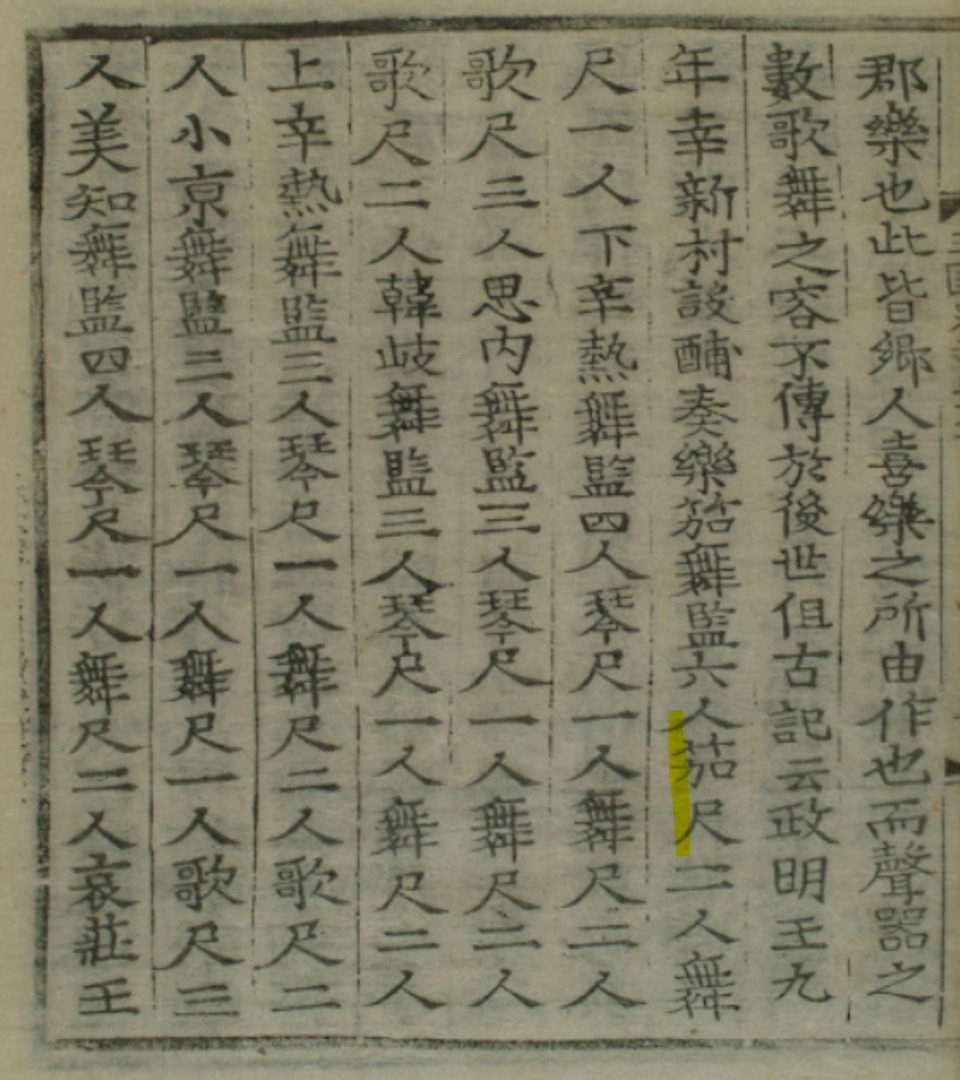 郡樂也此皆鄉人喜樂之所由作也而聲器之
數歌舞之容不傳於後世但古記云政明王九
年幸新村設酺奏樂笳舞監六人笳尺二人舞
尺一人下辛熱舞監四人琴尺一人舞尺二人
歌尺三人思内舞監三人琴尺一人舞尺二人
歌尺二人韓岐舞監三人琴尺一人舞尺二人
上辛熱舞監三人琴尺一人舞尺二人歌尺二
人小京舞監三人琴尺一人舞尺一人歌尺三
人美知舞監四人琴尺一人舞尺二人哀莊王